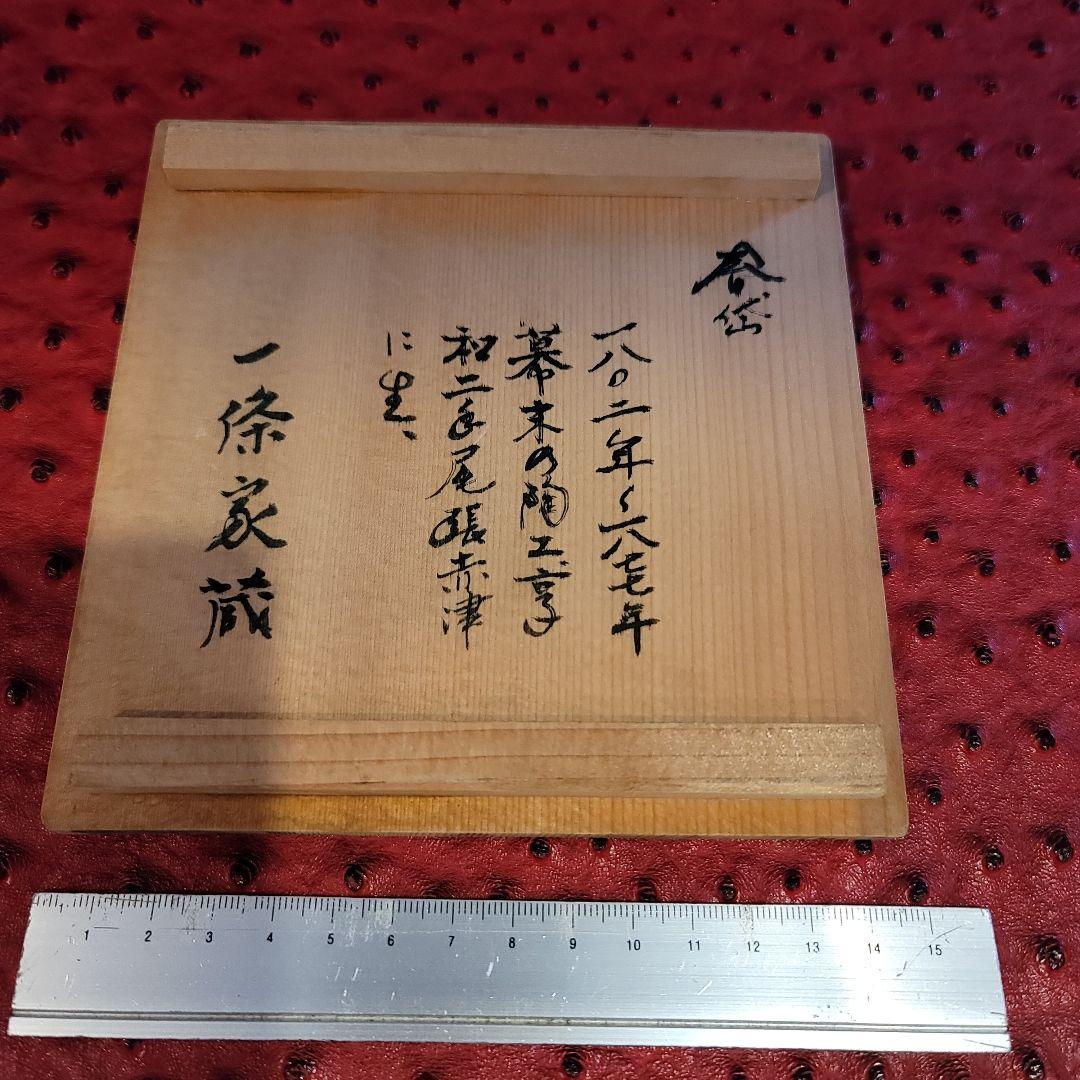 春岱
一八〇二年〜一八七七年
幕末の陶工享
和二年尾張赤津
に生、
一條家蔵
1 2 3 4 5 6 7 8 9 10 11 12 13 14 15